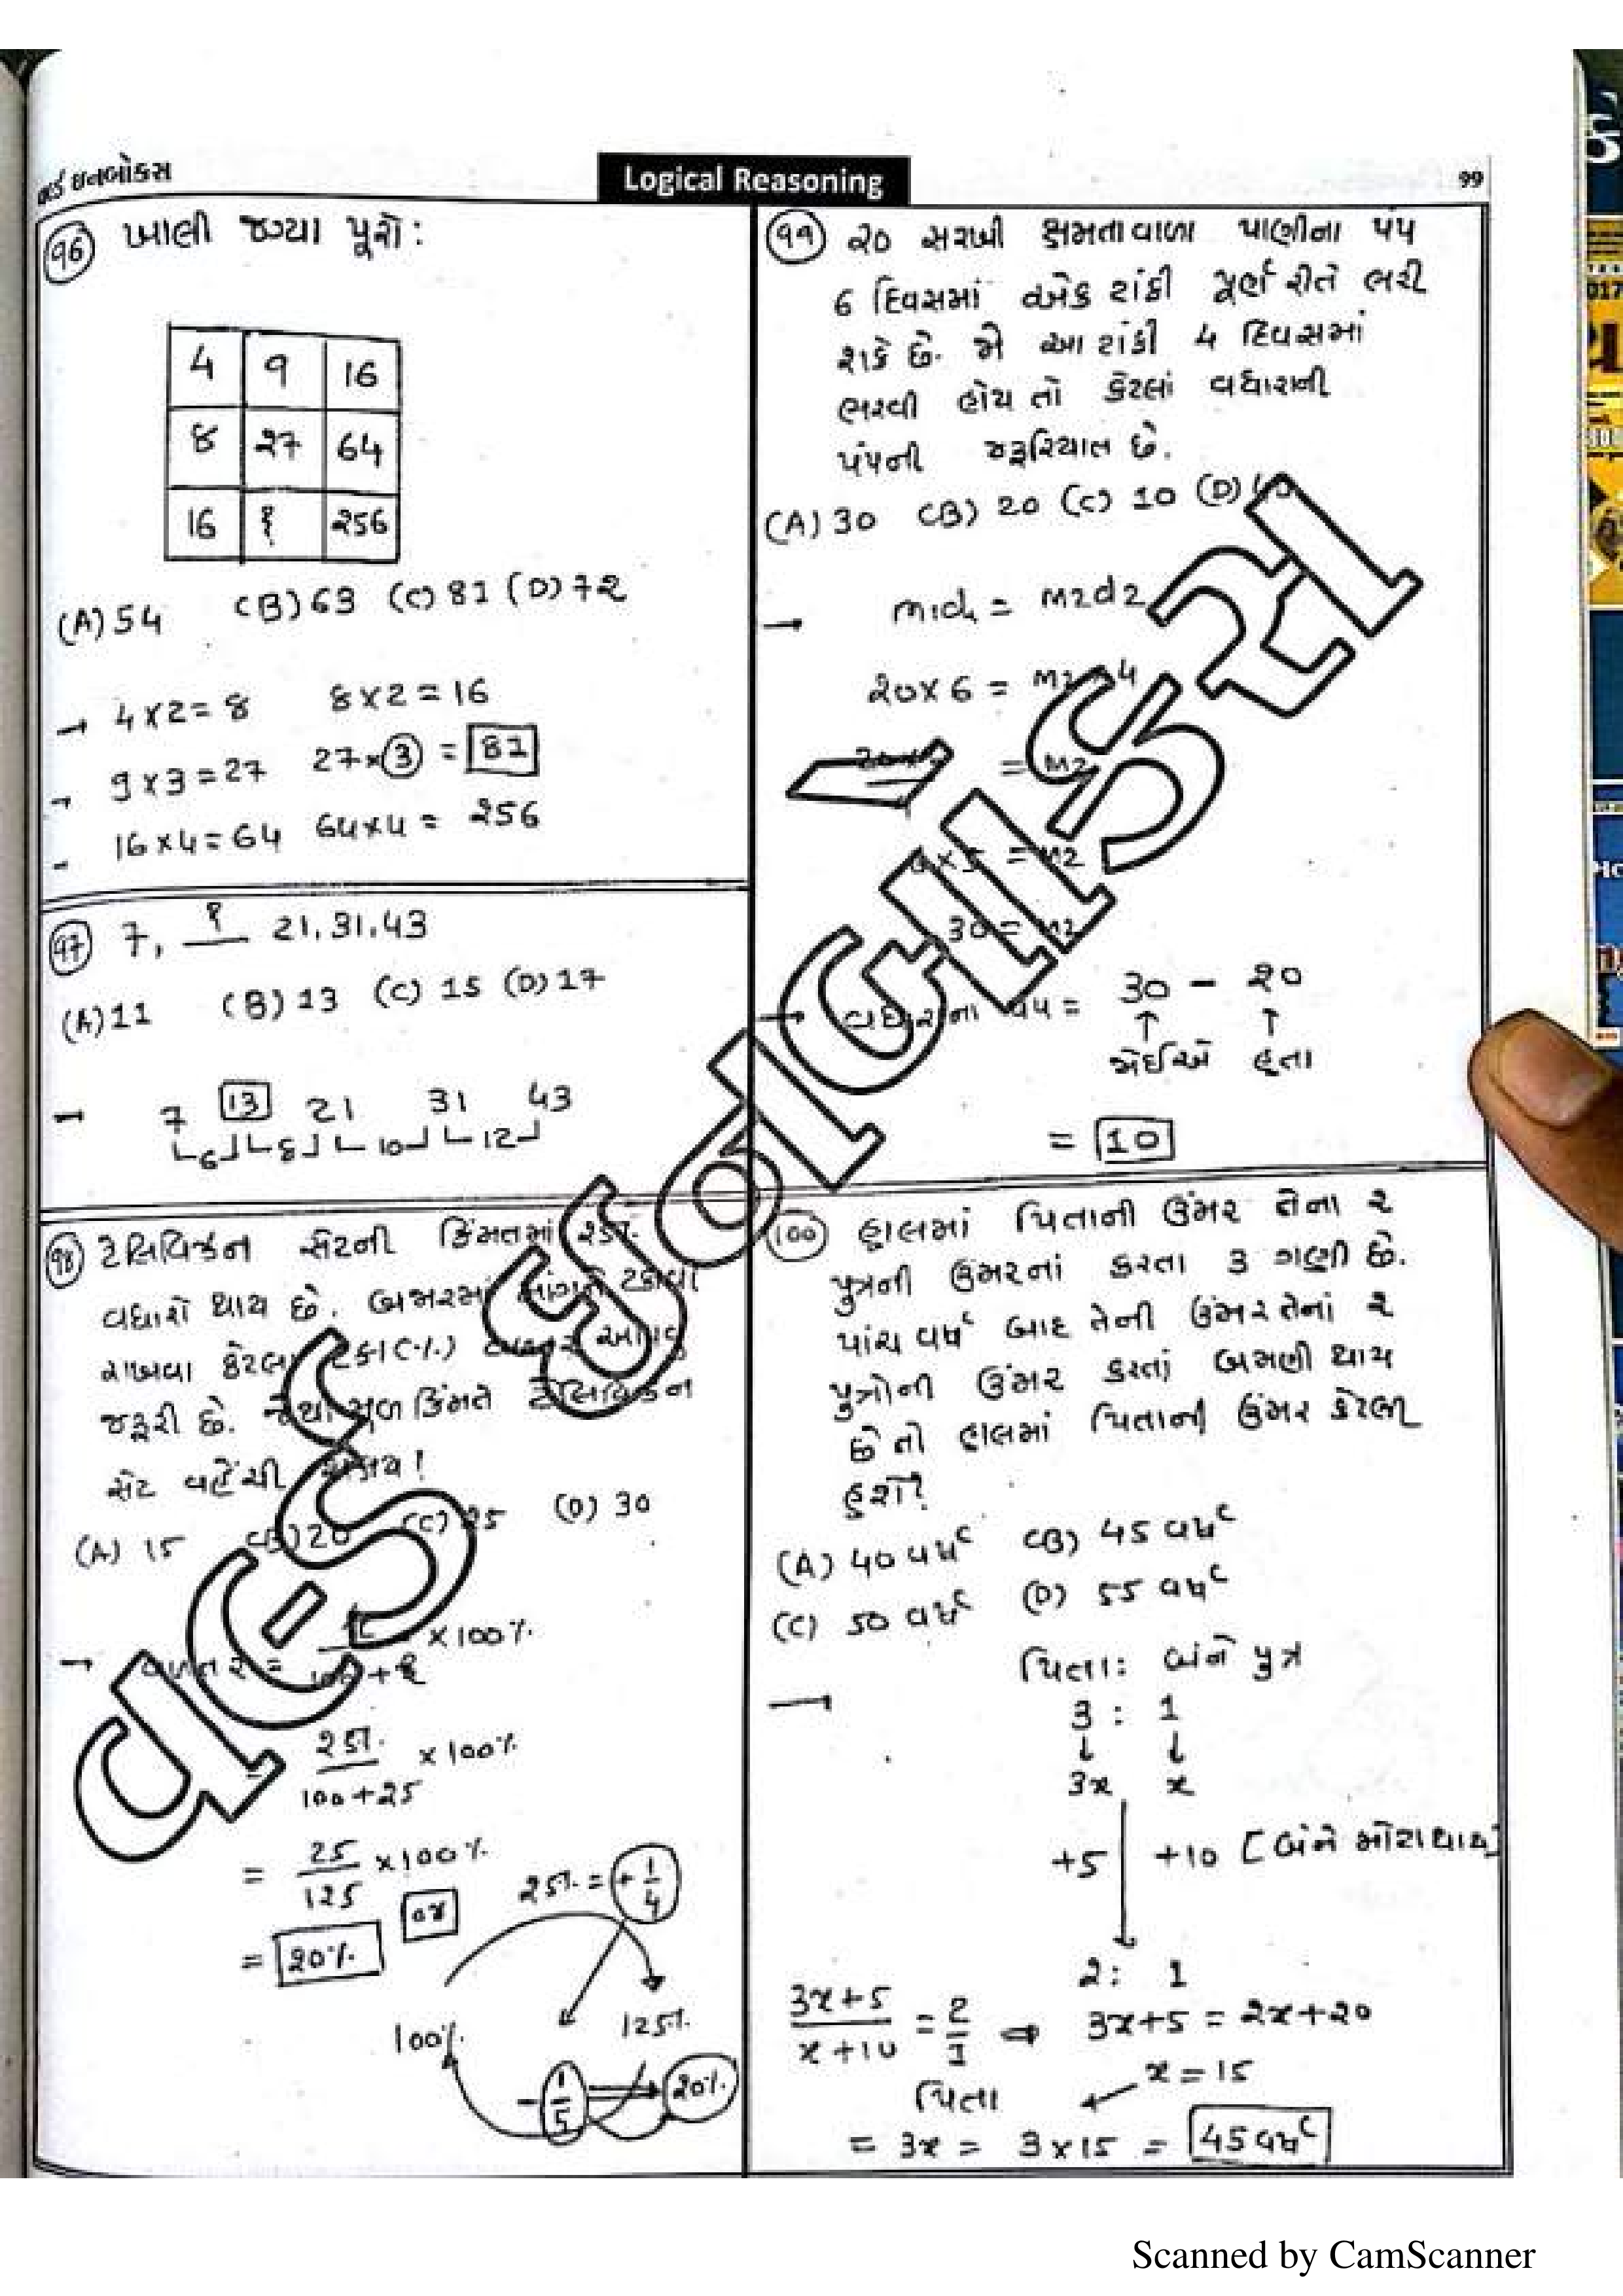 વર્લ્ડ ઇનબોકસ
Logical Reasoning
99
96 ખાલી જગ્યા પૂરો:
4 9 16
8 27 64
16 ? 256
(A) 54 (B) 63 (C) 81 (D) 72
→ 4 x 2 = 8 8 x 2 = 16
→ 9 x 3 = 27 27 x 3 = 81
- 16 x 4 = 64 64 x 4 = 256
97 7, ? 21, 31, 43
(A) 11 (B) 13 (C) 15 (D) 17
7 13 21 31 43
6 8 10 12
98 ટેલિવિઝન સેટની કિંમતમાં 25%
વધારો થાય છે. બજારમાં
રાખવા કેટલા ટકા (%)
જરૂરી છે. જેથી મૂળ કિંમતે ટેલિવિઝન
સેટ વહેંચી શકાય!
(A) 15 (B) 20 (C) 25 (D) 30
→ x 100%
25% / 100 + 25 x 100%
= 25 / 125 x 100%
= 20%
or
25% = + 1/4
100% 125%
- 1/5 20%
99 20 સરખી ક્ષમતાવાળા પાણીના પંપ
6 દિવસમાં એક ટાંકી પૂર્ણ રીતે ભરી
શકે છે. જો આ ટાંકી 4 દિવસમાં
ભરવી હોય તો કેટલાં વધારાની
પંપની જરૂરિયાત છે.
(A) 30 (B) 20 (C) 10 (D)
→ M1d1 = M2d2
20 x 6 = M2 x 4
= M2
6 x 5 = M2
30 = M2
→ વધારાના પંપ = 30 - 20
જોઈએ હતા
= 10
100 હાલમાં પિતાની ઉંમર તેના 2
પુત્રની ઉંમરનાં કરતા 3 ગણી છે.
પાંચ વર્ષ બાદ તેની ઉંમર તેનાં 2
પુત્રોની ઉંમર કરતાં બમણી થાય
છે તો હાલમાં પિતાની ઉંમર કેટલી
હશે?
(A) 40 વર્ષ (B) 45 વર્ષ
(C) 50 વર્ષ (D) 55 વર્ષ
પિતા: બંને પુત્ર
3 : 1
3x x
+5 +10 [બંને મોટા થાય]
2 : 1
3x+5 / x+10 = 2/1 ⇒ 3x+5 = 2x+20
x = 15
પિતા
= 3x = 3 x 15 = 45 વર્ષ
Scanned by CamScanner